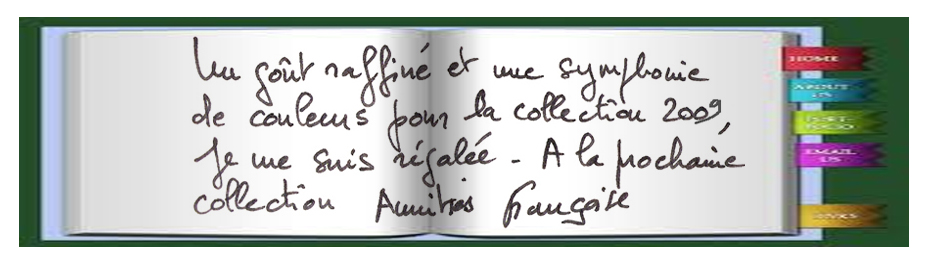 Un goût raffiné et une symphonie
de couleurs pour la collection 2009,
je me suis régalée - A la prochaine
collection Amitiés française
HOME
ABOUT
US
EMAIL
US
LINKS